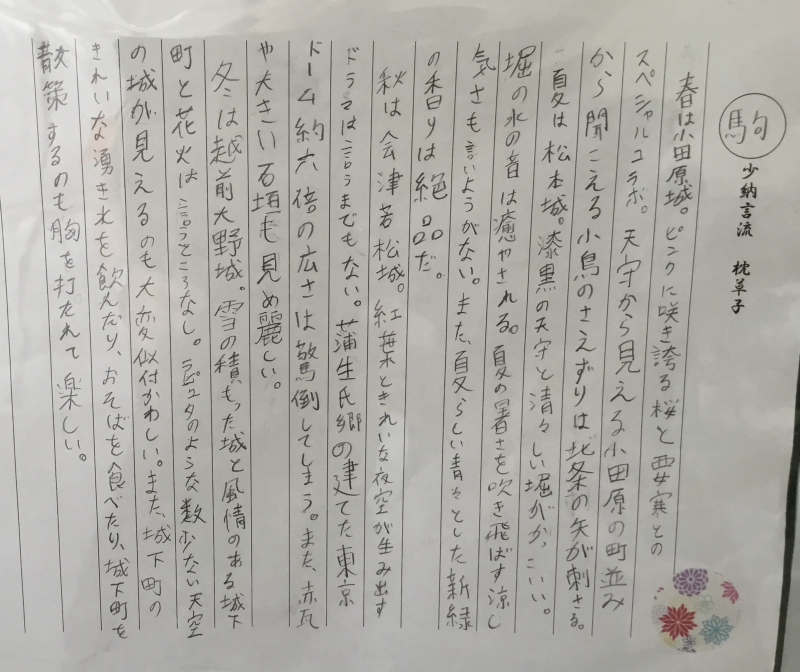 駒
少納言流 枕草子
春は小田原城。ピンクに咲き誇る桜と
スペシャルコラボ。天守から見える小田原の町並み
から聞こえる小鳥のさえずりは北条の矢が刺さる。
夏は松本城。漆黒の天守と清々しい堀がかっこいい。
堀の水の音は癒やされる。夏の暑さを吹き飛ばす涼し
気さも言いようがない。また、夏らしい青々とした新緑
の香りは絶品だ。
秋は会津若松城。紅葉ときれいな夜空が生み出す
ドラマは言うまでもない。蒲生氏郷の建てた東京
ドーム約六倍の広さは驚倒してしまう。また、赤瓦
や大きい石垣も見め麗しい。
冬は越前大野城。雪の積もった城と風情のある城下
町と花火は言うところなし。ラピュタのような数少ない天空
の城が見えるのも大変似付かわしい。また、城下町の
きれいな湧き水を飲んだり、おそばを食べたり、城下町を
散策するのも胸を打たれて楽しい。